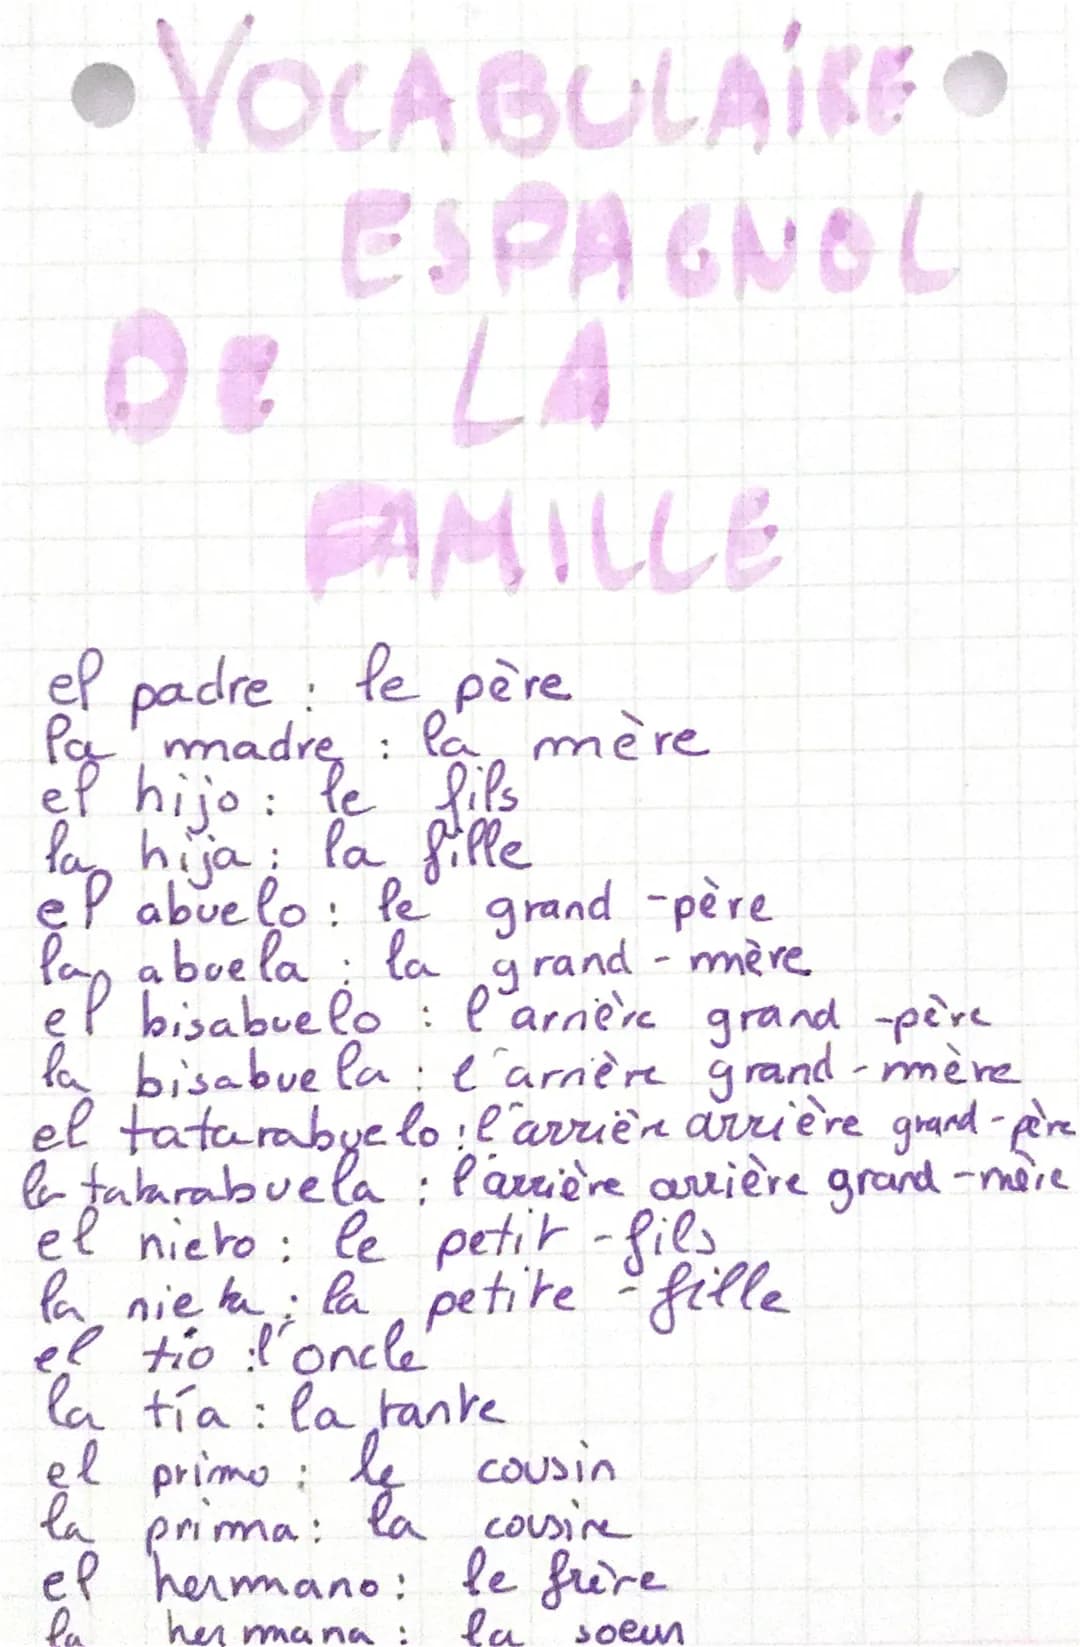 VOCABULAiRE
ESPAGNOL
DE LA
FAMILLE
el padre : le père
la madre : la mère
el hijo : le fils
la hija : la fille
el abuelo : le grand-père
la abuela : la grand-mère
el bisabuelo : l'arrière grand-père
la bisabuela : l'arrière grand-mère
el tatarabuelo : l'arrière arrière grand-père
la tatarabuela : l'arrière arrière grand-mère
el nieto : le petit-fils
la nieta : la petite-fille
el tío : l'oncle
la tía : la tante
el primo : le cousin
la prima : la cousine
el hermano : le frère
la hermana : la soeur